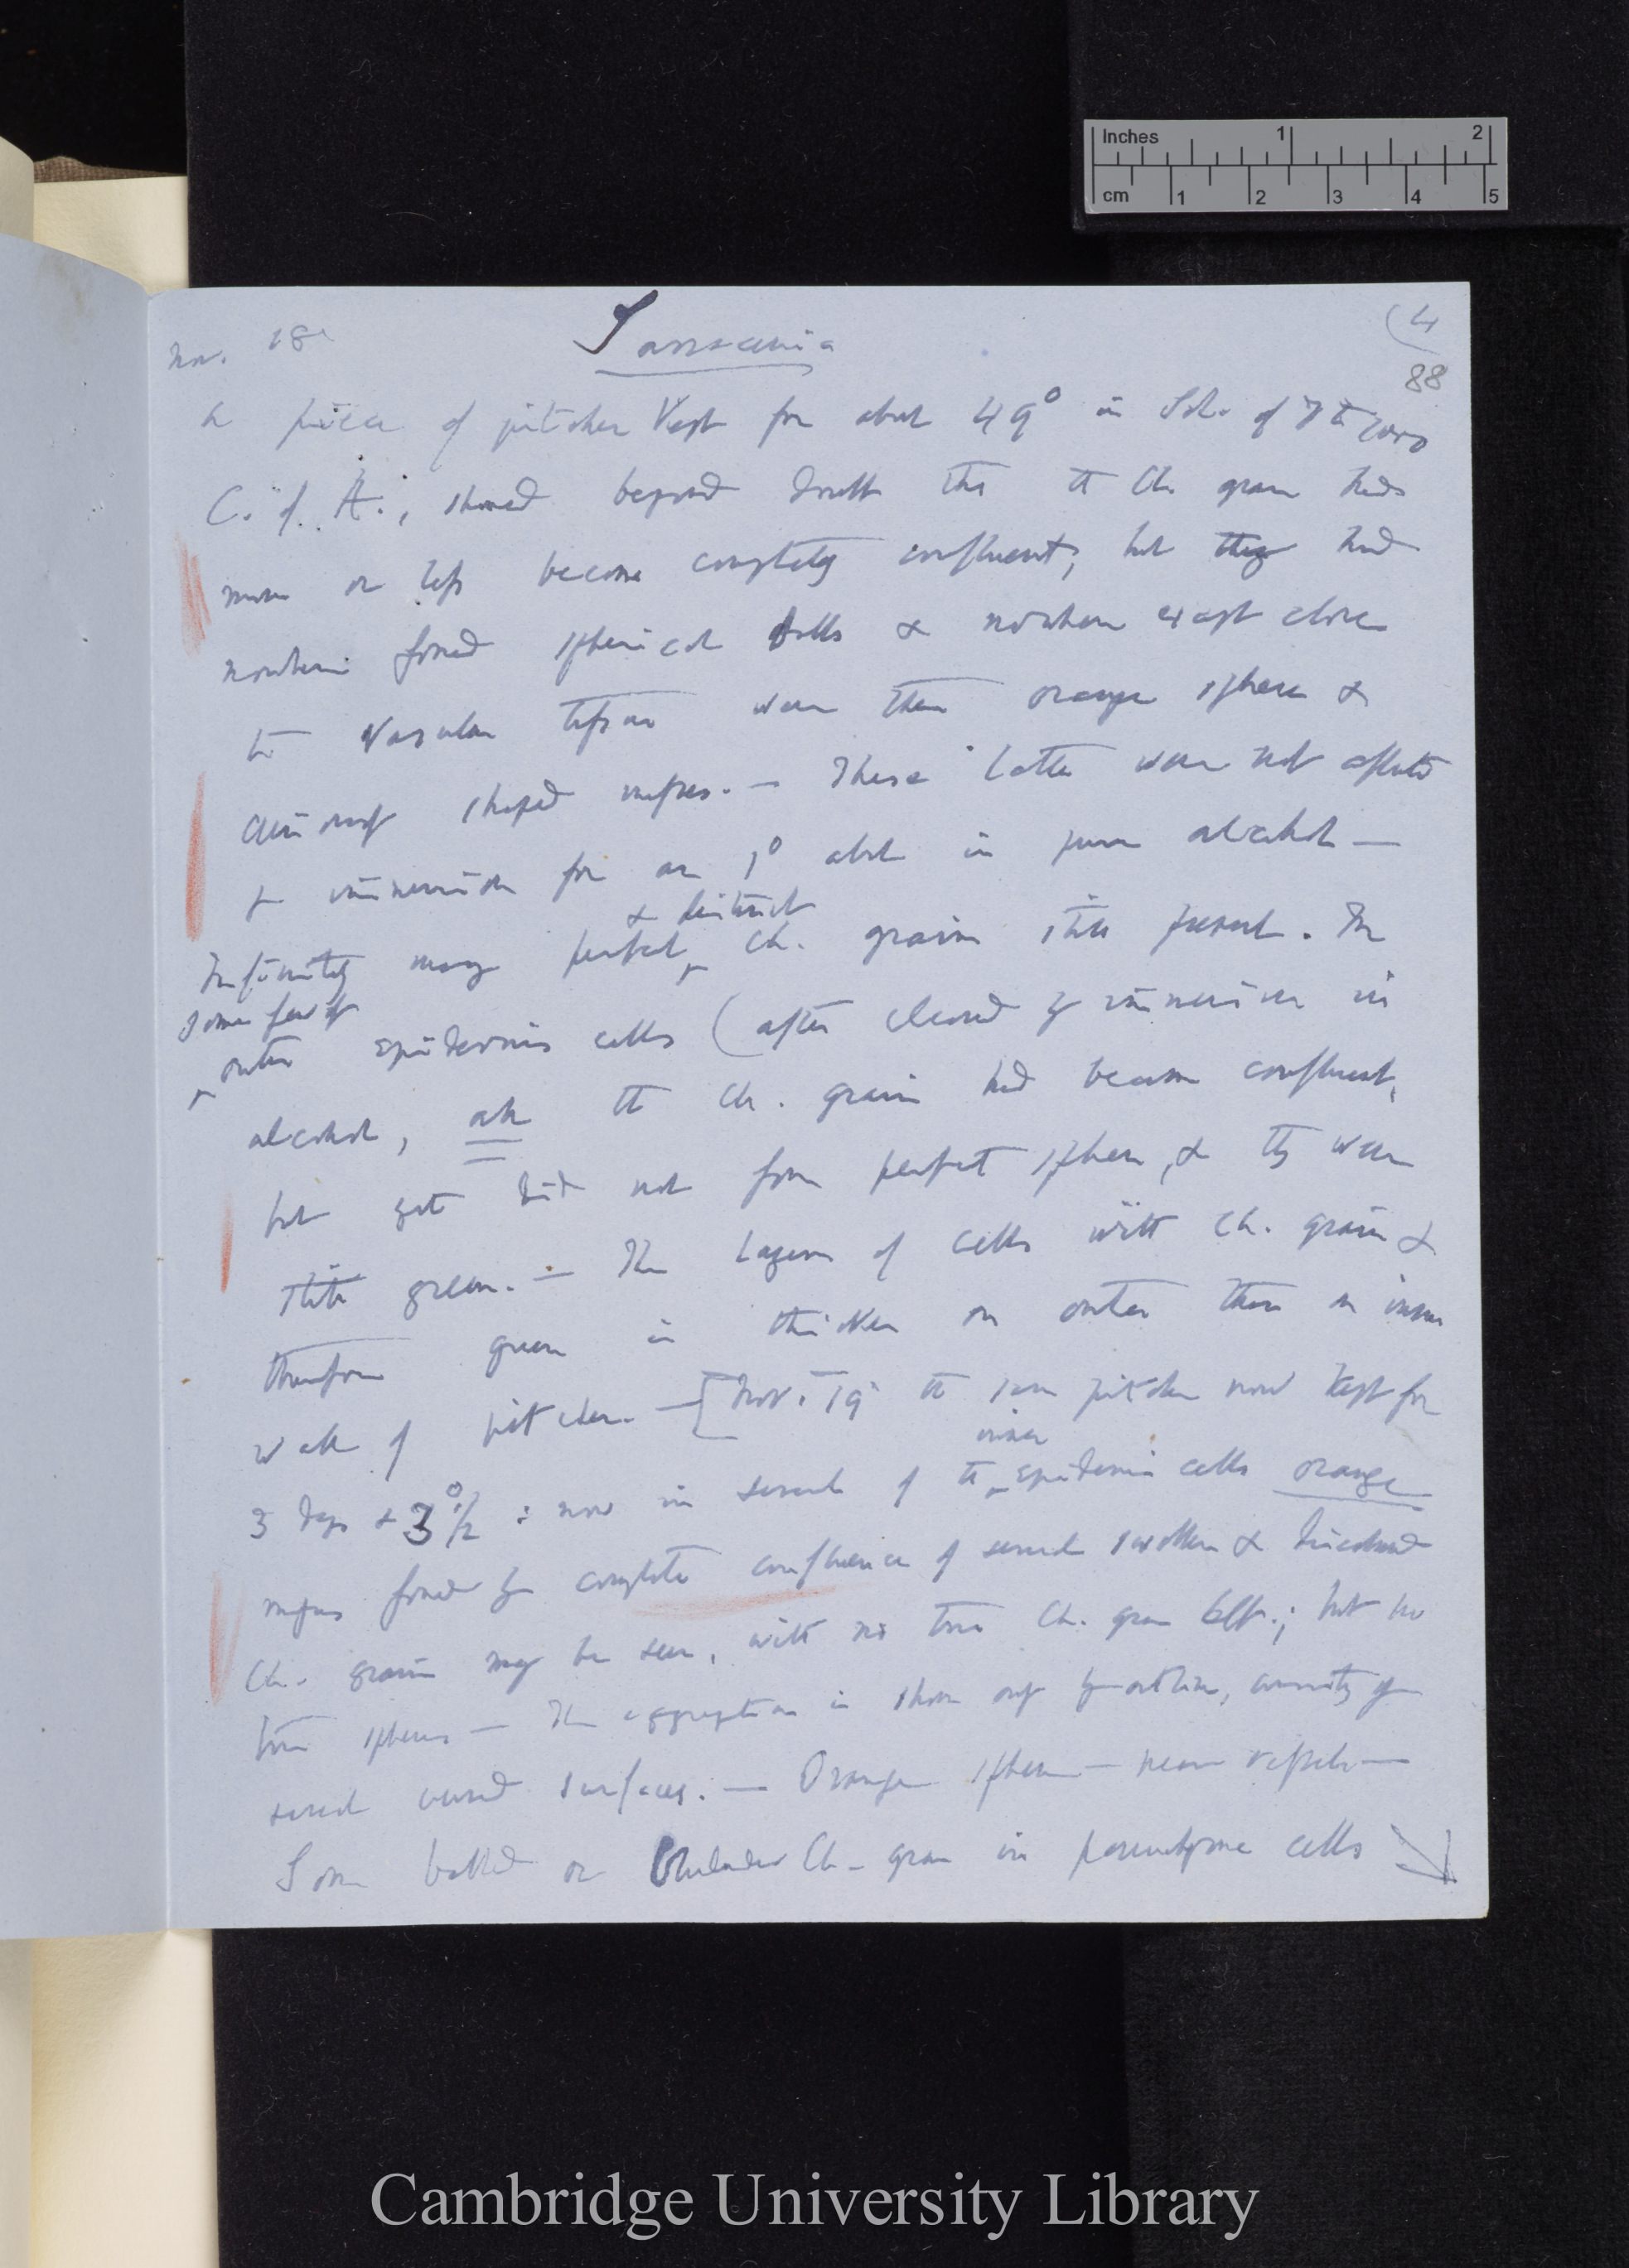 Inches 1 2
cm 1 2 3 4 5
Nov. 18 Sarracenia (4
88
A piece of pitcher Kept for about 49° in Sol. of 7 to 1000
C. of A., showed beyond doubt that the Ch. grains had
more or less become completely confluent, but they had
nowhere formed spherical balls & nowhere except close
to vascular tissue were there orange spheres &
shaped masses. — These latter were not affected
by immersion for an 1° about in pure alcohol —
& distinct
Infinitely many perfect Ch. grains still present. In
some few of
outer epidermis cells (after cleared by immersion in
alcohol, all the Ch. grains had become confluent,
but yet did not form perfect spheres, & they were
still green. — The layers of cells with Ch. grains &
therefore green is thicker on outer than on inner
wall of pitcher. — [Nov. 19 the same pitcher now Kept for
inner
3 days & 3°½ : now in several of the epidermis cells orange
masses formed by complete confluence of several swollen & discoloured
Ch. grains may be seen, with no true Ch. grain left; but no
true spheres — The aggregation is shown only by outline, consisting of
several curved surfaces. — Orange spheres — near vessels —
Some balled or Ch. grains in parenchyma cells
Cambridge University Library